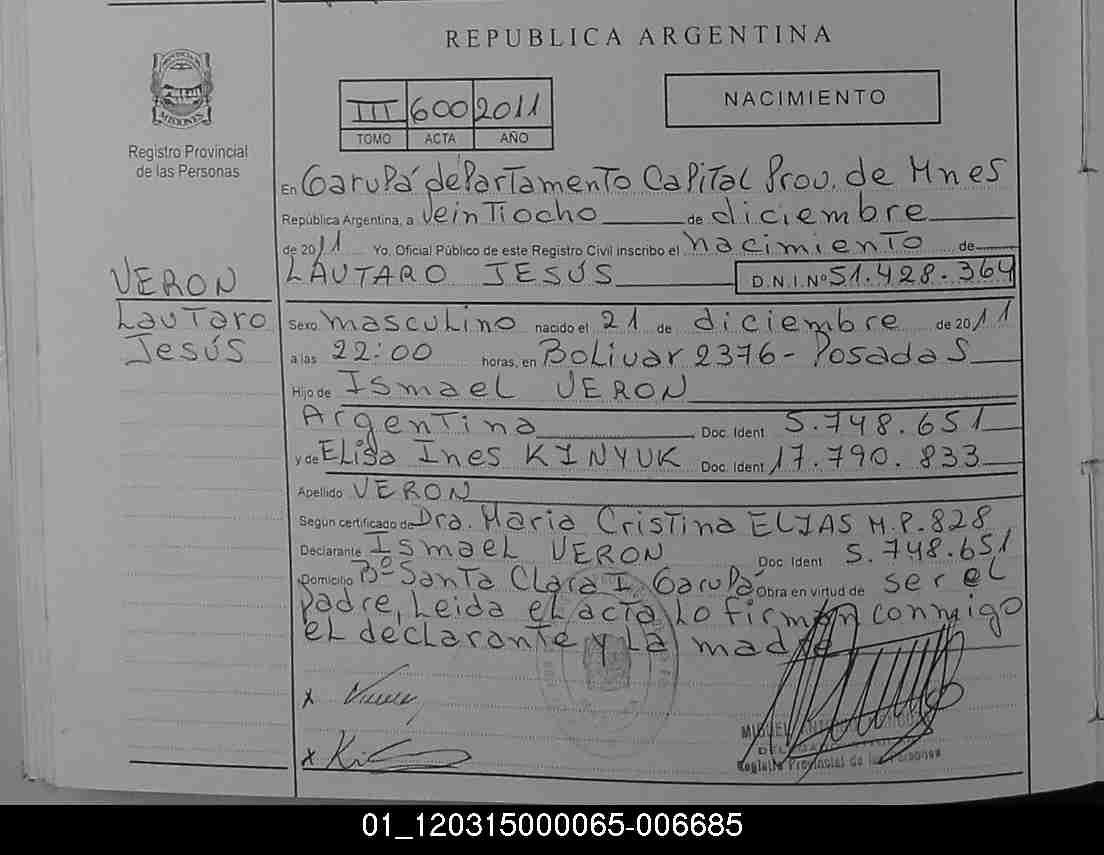 REPUBLICA ARGENTINA
PROVINCIA DE MISIONES
Registro Provincial
de las Personas
III 600 2011
TOMO ACTA AÑO
NACIMIENTO
En Garupá departamento Capital Prov. de Mnes
República Argentina, a Veintiocho de diciembre
de 2011 Yo, Oficial Público de este Registro Civil inscribo el nacimiento de
LAUTARO JESÚS D.N.I.Nº 51.428.364
VERON
Lautaro
Jesús
Sexo masculino nacido el 21 de diciembre de 2011
a las 22:00 horas, en Bolivar 2376 - Posadas
Hijo de Ismael VERON
Argentina Doc. Ident 5.748.651
y de Elisa Ines KINYUK Doc. Ident 17.790.833
Apellido VERON
Según certificado de Dra. Maria Cristina ELIAS M.P. 828
Declarante Ismael VERON Doc Ident 5.748.651
Domicilio Bº Santa Clara I, Garupá Obra en virtud de ser el
padre, Leida el acta lo firman conmigo
el declarante y la madre
MIGUEL
Registro Provincial de las Personas
01_120315000065-006685